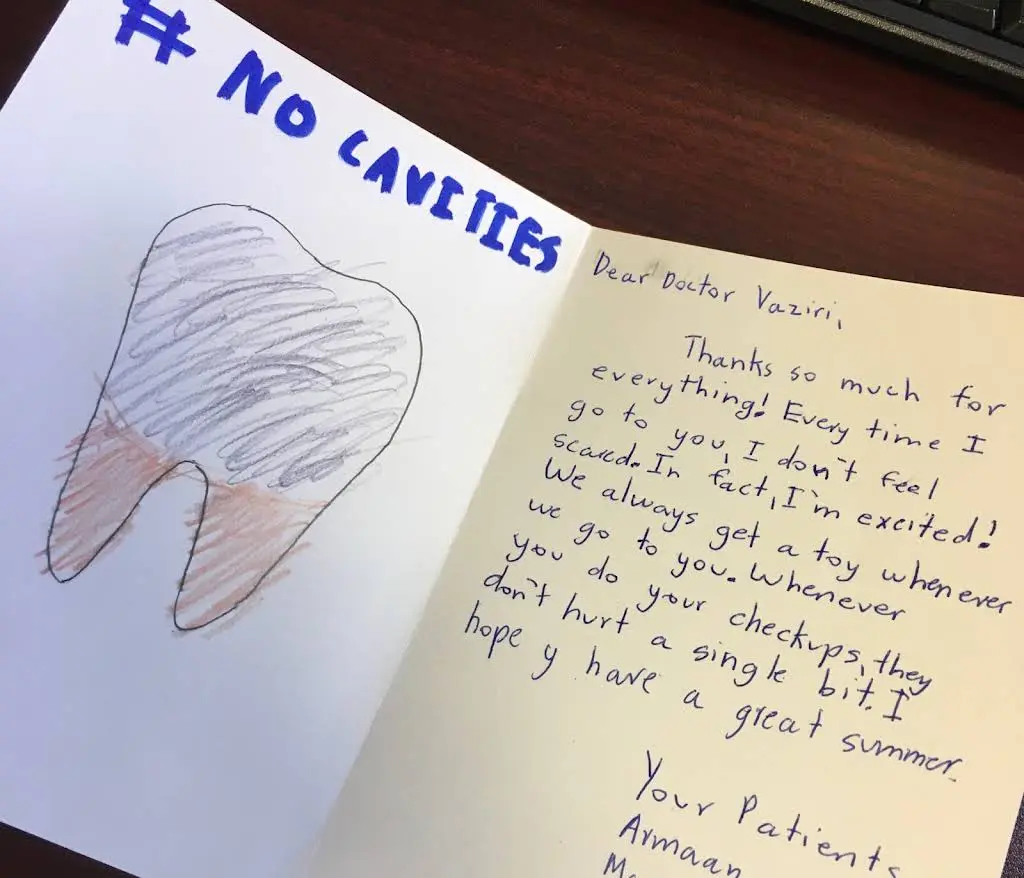 # NO CAVITIES
Dear Doctor Vaziri,
Thanks so much for
everything! Every time I
go to you, I don't feel
scared. In fact, I'm excited!
We always get a toy whenever
we go to you. Whenever
you do your checkups, they
don't hurt a single bit. I
hope y have a great summer.
Your Patients
Armaan